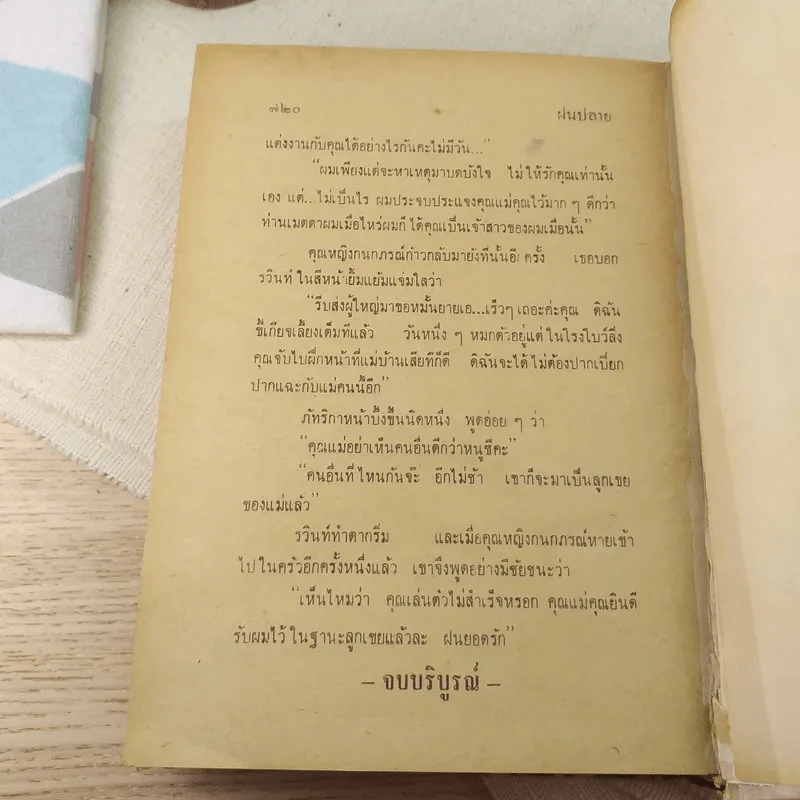 ๗๒๐ ฝนปลาย
แต่งงานกับคุณได้อย่างไรกันคะไม่มีวัน...”
“ผมเพียงแต่จะหาเหตุมาบดบังใจ ไม่ให้รักคุณเท่านั้น
เอง แต่...ไม่เป็นไร ผมประจบประแจงคุณแม่คุณไว้มาก ๆ ดีกว่า
ท่านเมตตาผมเมื่อไหร่ผมก็ได้คุณเป็นเจ้าสาวของผมเมื่อนั้น”
คุณหญิงกนกภรณ์ก้าวกลับมายังที่นั้นอีกครั้ง เธอบอก
รวินท์ ในสีหน้ายิ้มแย้มแจ่มใสว่า
“รีบส่งผู้ใหญ่มาขอหมั้นยายเอ...เร็วๆ เถอะค่ะคุณ ดิฉัน
ขี้เกียจเลี้ยงเต็มทีแล้ว วันหนึ่ง ๆ หมกตัวอยู่แต่ในโรงโบว์ลิ่ง
คุณจับไปฝึกหน้าที่แม่บ้านเสียทีก็ดี ดิฉันจะได้ไม่ต้องปากเปียก
ปากแฉะกับแม่คนนี้อีก”
ภัทริกาหน้าบึ้งขึ้นนิดหนึ่ง พูดอ่อย ๆ ว่า
“คุณแม่อย่าเห็นคนอื่นดีกว่าหนูซีคะ”
“คนอื่นที่ไหนกันจ๊ะ อีกไม่ช้า เขาก็จะมาเป็นลูกเขย
ของแม่แล้ว”
รวินท์ทำตากริ่ม และเมื่อคุณหญิงกนกภรณ์หายเข้า
ไปในครัวอีกครั้งหนึ่งแล้ว เขาจึงพูดอย่างมีชัยชนะว่า
“เห็นไหมว่า คุณเล่นตัวไม่สำเร็จหรอก คุณแม่คุณยินดี
รับผมไว้ในฐานะลูกเขยแล้วละ ฝนยอดรัก”
– จบบริบูรณ์ –